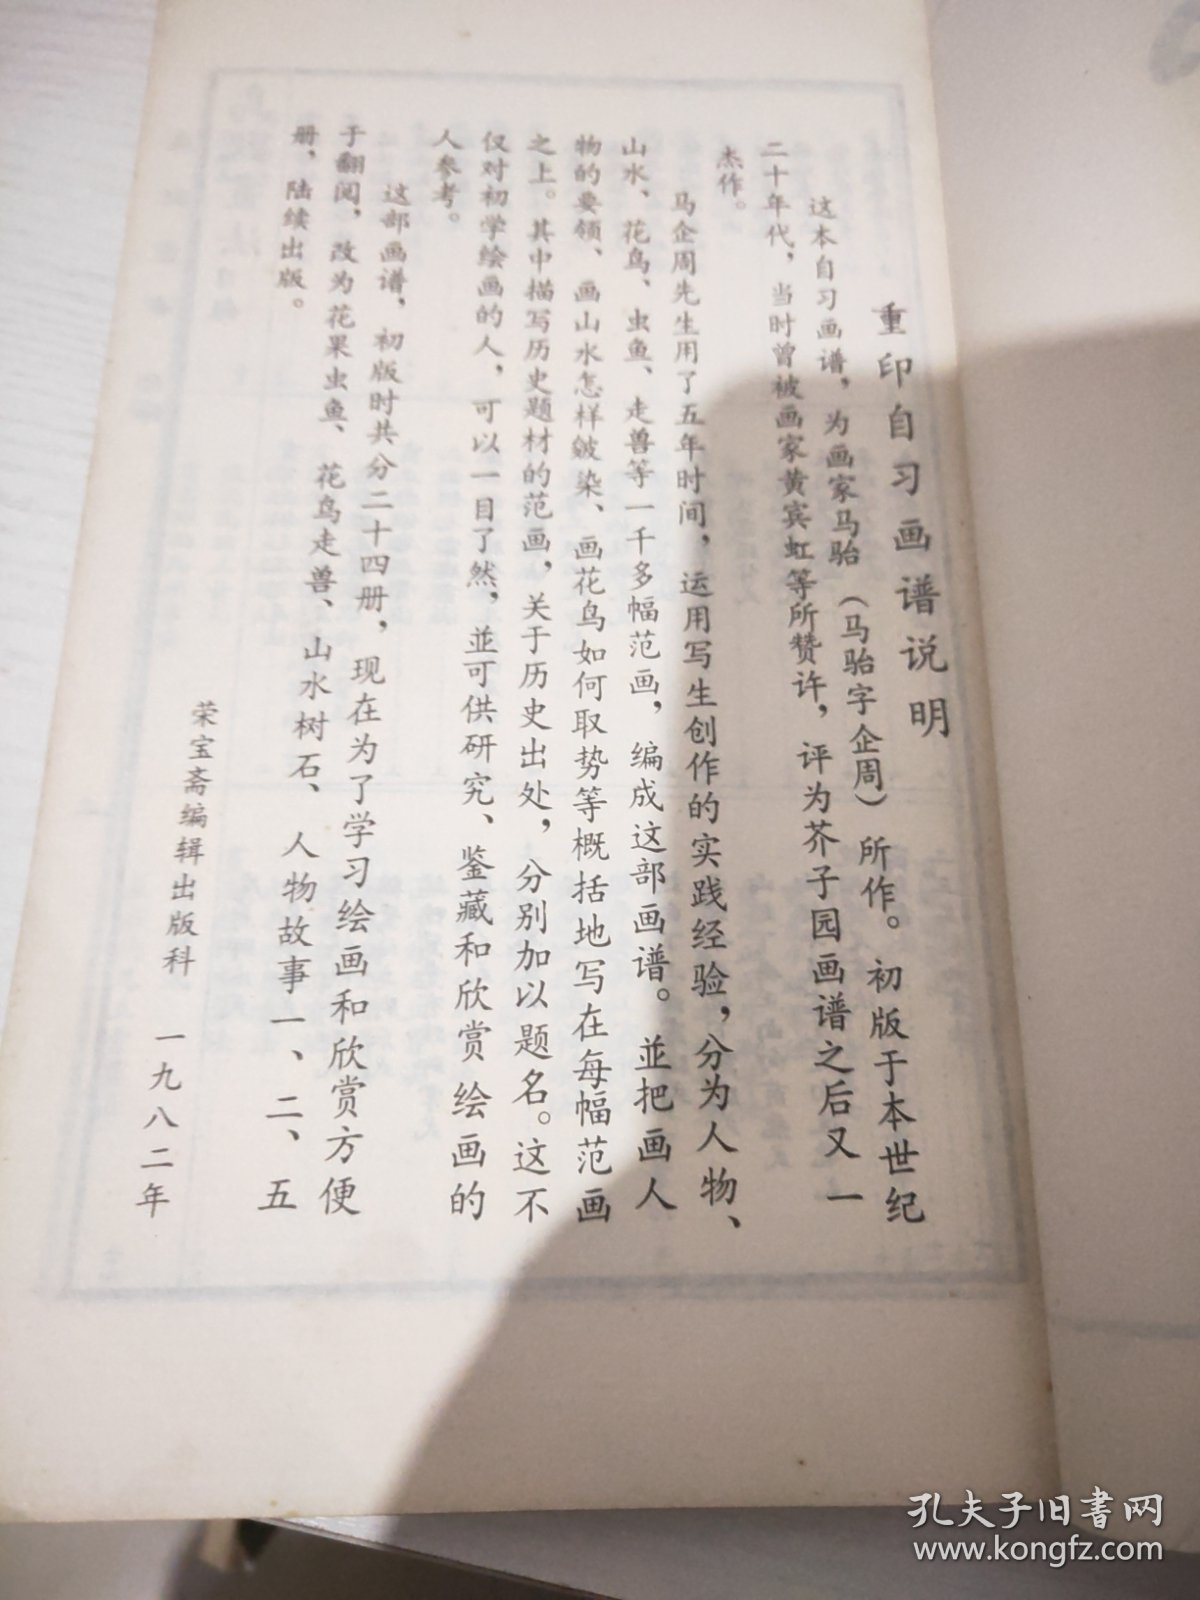 重印自习画谱说明
这本自习画谱，为画家马骀（马骀字企周）所作。初版于本世纪
二十年代，当时曾被画家黄宾虹等所赞许，评为芥子园画谱之后又一
杰作。
马企周先生用了五年时间，运用写生创作的实践经验，分为人物、
山水、花鸟、虫鱼、走兽等一千多幅范画，编成这部画谱。並把画人
物的要领、画山水怎样皴染、画花鸟如何取势等概括地写在每幅范画
之上。其中描写历史题材的范画，关于历史出处，分别加以题名。这不
仅对初学绘画的人，可以一目了然，並可供研究、鉴藏和欣赏绘画的
人参考。
这部画谱，初版时共分二十四册，现在为了学习绘画和欣赏方便
于翻阅，改为花果虫鱼、花鸟走兽、山水树石、人物故事一、二、五
册，陆续出版。
荣宝斋编辑出版科 一九八二年
孔夫子旧书网
www.kongfz.com